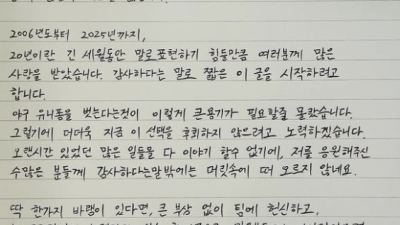 2006년도부터 2025년까지,
20년이란 긴 세월동안 말로표현하기 힘들만큼 여러분께 많은
사랑을 받았습니다. 감사하다는 말로 짧은 이 글을 시작하려고
합니다.
야구 유니폼을 벗는다는것이 이렇게 큰용기가 필요할줄 몰랐습니다.
그렇기에 더더욱 지금 이 선택을 후회하지 않으려고 노력하겠습니다.
오랜시간 있었던 많은 일들을 다 이야기 할수 없기에, 저를 응원해주신
수많은 분들께 감사하다는말밖에는 머릿속에 떠 오르지 않네요.
딱 한가지 바램이 있다면, 큰 부상 없이 팀에 헌신하고,